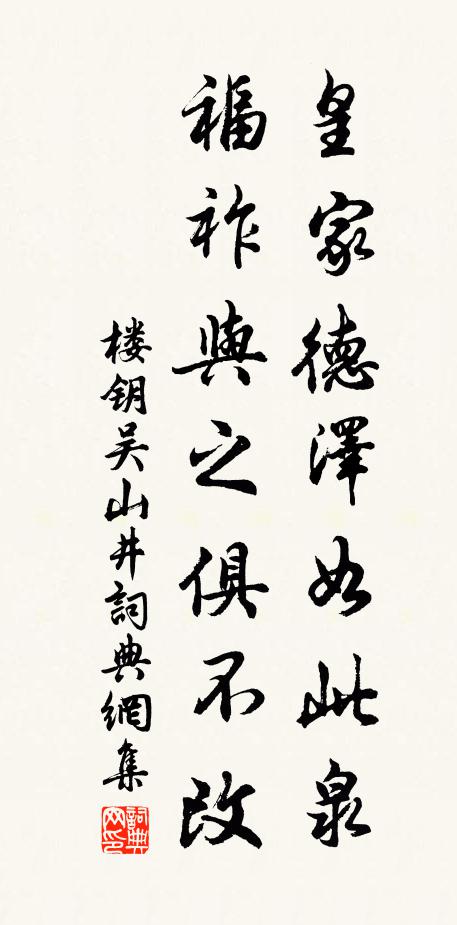 皇家德澤如此泉
福祚與之俱不改
楼钥吴山井詞典網集
詞典网印